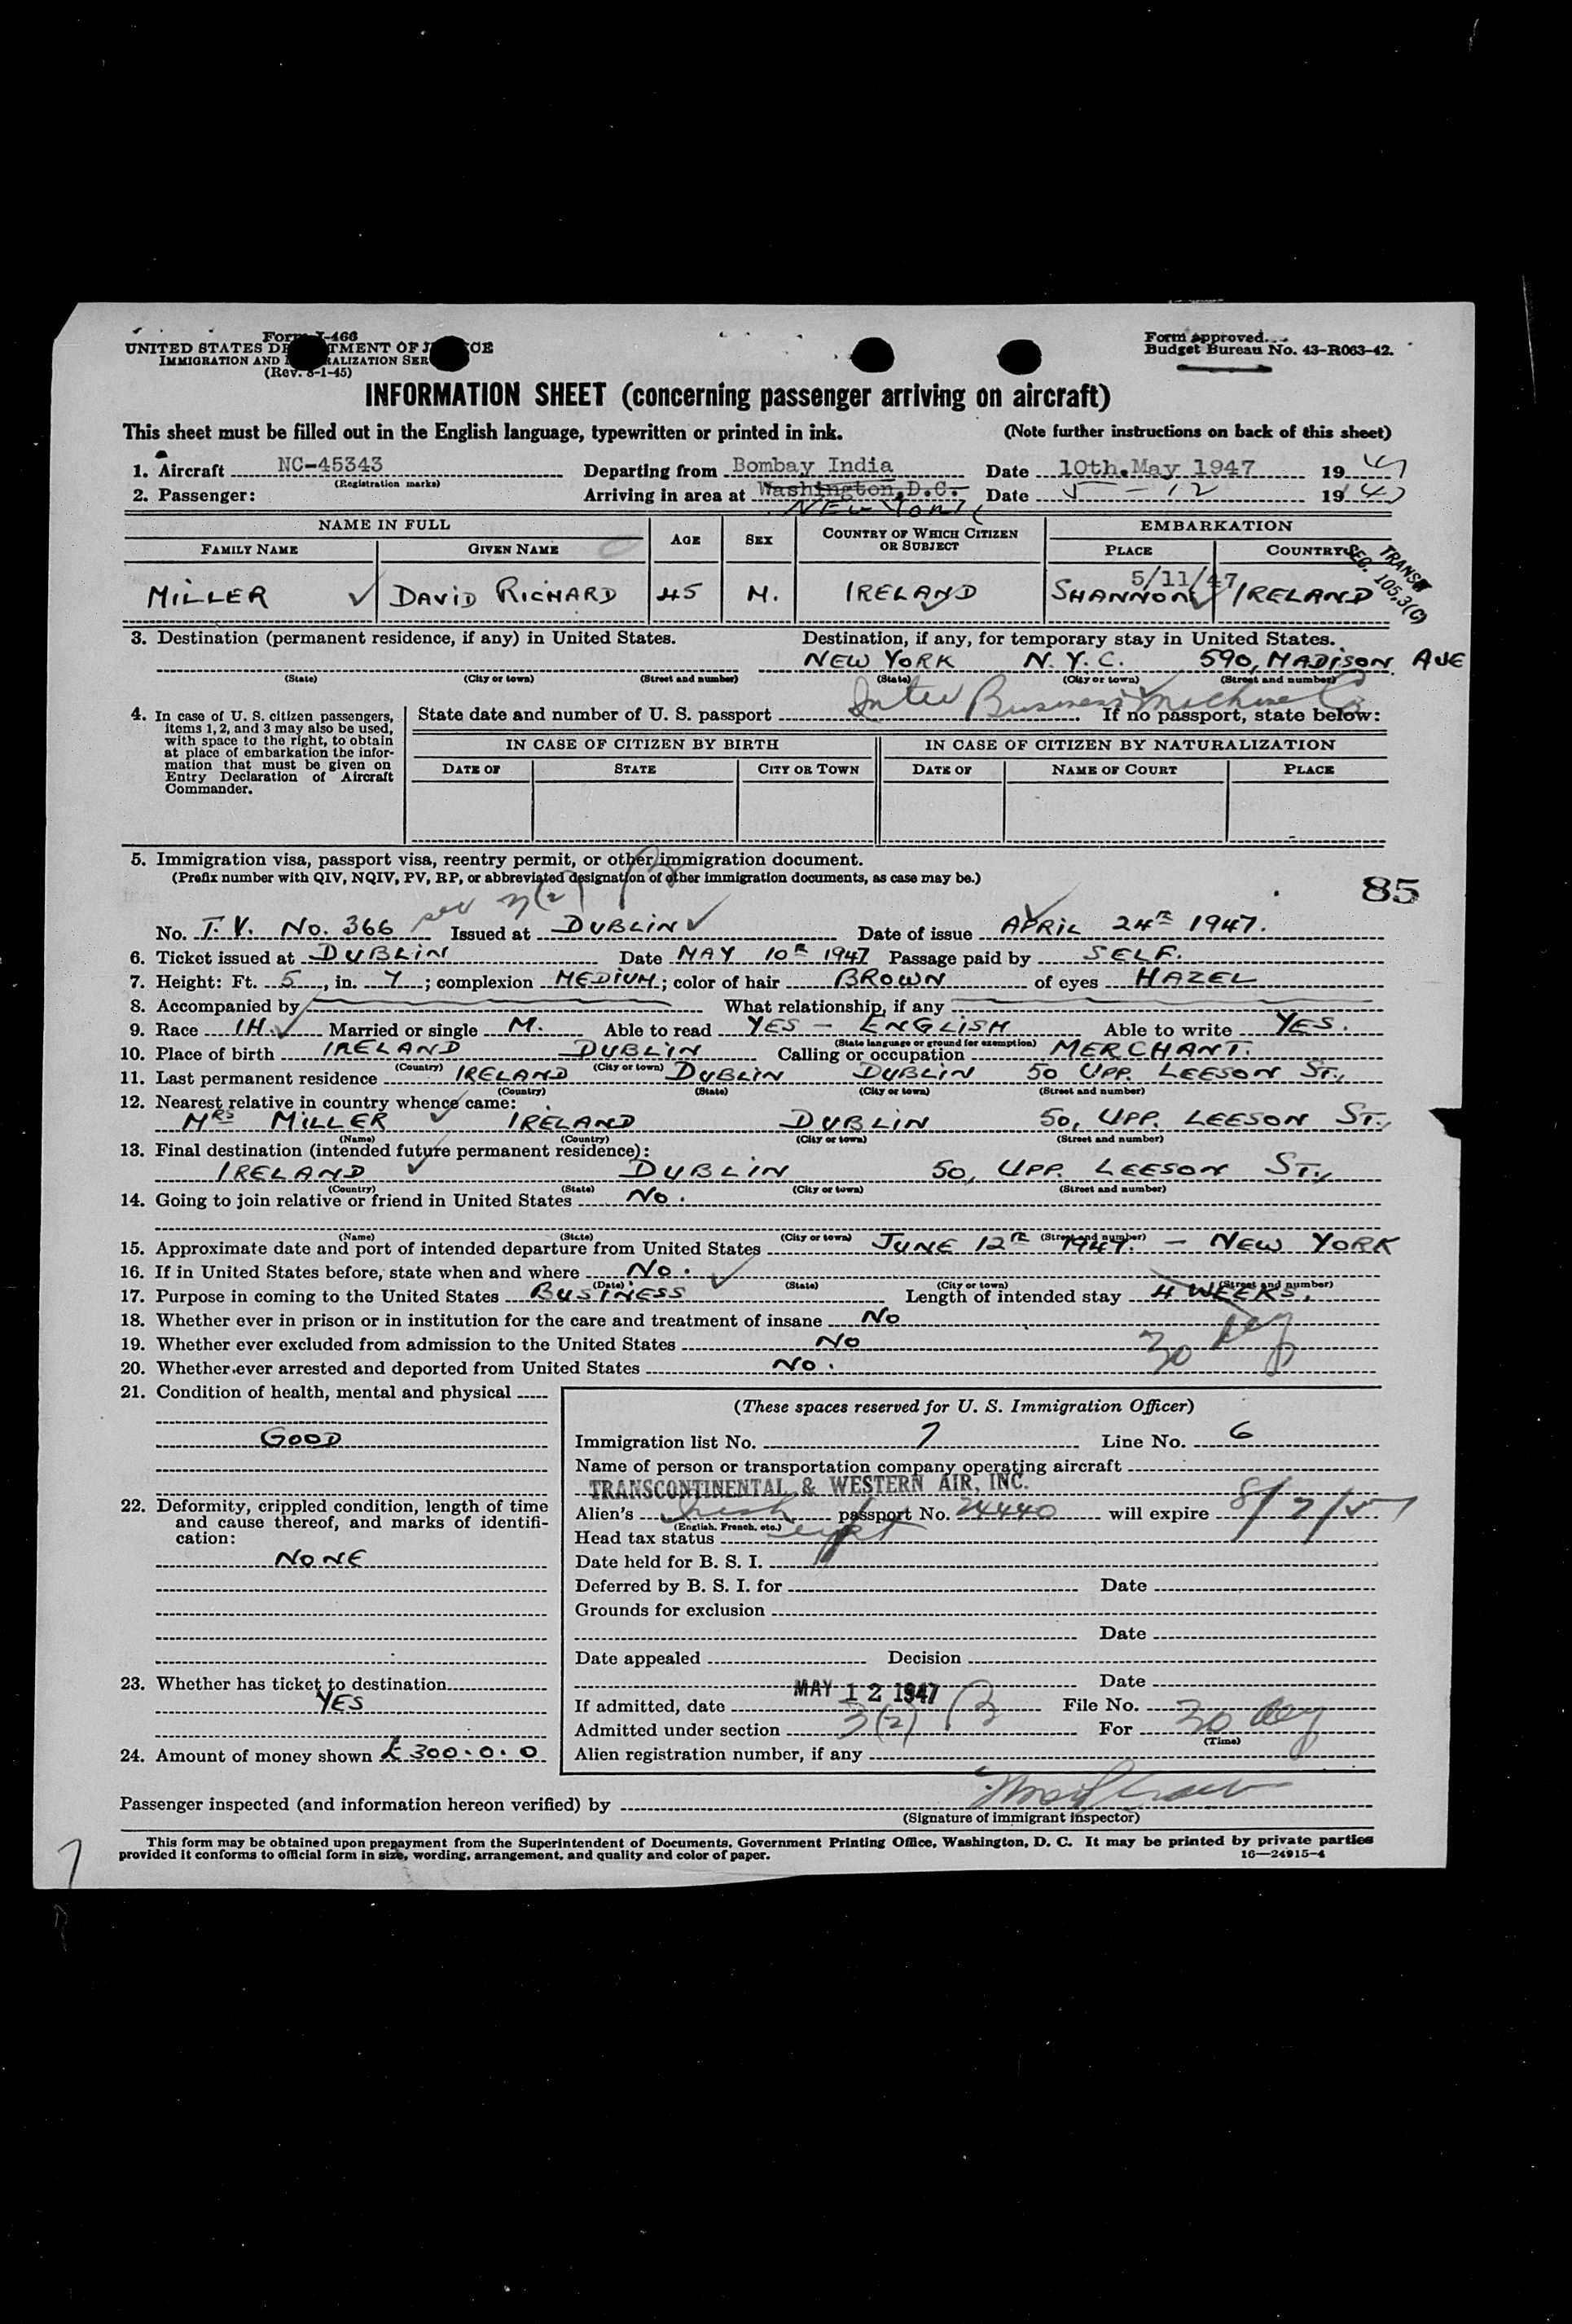 Form I-466
UNITED STATES DEPARTMENT OF JUSTICE
IMMIGRATION AND NATURALIZATION SER
(Rev. 8-1-45)
Form approved.
Budget Bureau No. 43-R063-42.
INFORMATION SHEET (concerning passenger arriving on aircraft)
This sheet must be filled out in the English language, typewritten or printed in ink. (Note further instructions on back of this sheet)
1. Aircraft NC-45343 Departing from Bombay India Date 10th.May 1947 1947
(Registration marks)
2. Passenger: Arriving in area at Washington,D.C. Date 5 - 12 1947
NEW YORK
NAME IN FULL AGE SEX COUNTRY OF WHICH CITIZEN OR SUBJECT EMBARKATION
FAMILY NAME GIVEN NAME PLACE COUNTRY
TRANSIT
SEC. 105.3(C)
5/11/47
MILLER DAVID RICHARD 45 M. IRELAND SHANNON IRELAND
3. Destination (permanent residence, if any) in United States. Destination, if any, for temporary stay in United States.
NEW YORK N.Y.C. 590, MADISON AVE
(State) (City or town) (Street and number) (State) (City or town) (Street and number)
Business Machine Co
4. In case of U. S. citizen passengers, items 1, 2, and 3 may also be used, with space to the right, to obtain at place of embarkation the information that must be given on Entry Declaration of Aircraft Commander.
State date and number of U. S. passport If no passport, state below:
IN CASE OF CITIZEN BY BIRTH IN CASE OF CITIZEN BY NATURALIZATION
DATE OF STATE CITY OR TOWN DATE OF NAME OF COURT PLACE
5. Immigration visa, passport visa, reentry permit, or other immigration document.
(Prefix number with QIV, NQIV, PV, RP, or abbreviated designation of other immigration documents, as case may be.)
85
sec 3(2) B
No. T.V. No. 366 Issued at DUBLIN Date of issue APRIL 24TH 1947.
6. Ticket issued at DUBLIN Date MAY 10TH 1947 Passage paid by SELF.
7. Height: Ft. 5, in. 7; complexion MEDIUM; color of hair BROWN of eyes HAZEL
8. Accompanied by What relationship, if any
9. Race IH. Married or single M. Able to read YES - ENGLISH Able to write YES.
(State language or ground for exemption)
10. Place of birth IRELAND DUBLIN Calling or occupation MERCHANT.
(Country) (City or town)
11. Last permanent residence IRELAND DUBLIN DUBLIN 50 UPP. LEESON ST.,
(Country) (State) (City or town) (Street and number)
12. Nearest relative in country whence came:
MRS MILLER IRELAND DUBLIN 50, UPP. LEESON ST.,
(Name) (Country) (City or town) (Street and number)
13. Final destination (intended future permanent residence):
IRELAND DUBLIN 50, UPP. LEESON ST.,
(Country) (State) (City or town) (Street and number)
14. Going to join relative or friend in United States NO.
(Name) (State) (City or town) (Street and number)
15. Approximate date and port of intended departure from United States JUNE 12TH 1947. - NEW YORK
16. If in United States before, state when and where NO.
(Date) (State) (City or town) (Street and number)
17. Purpose in coming to the United States BUSINESS Length of intended stay 4 WEEKS.
18. Whether ever in prison or in institution for the care and treatment of insane NO
30 day
19. Whether ever excluded from admission to the United States NO
20. Whether ever arrested and deported from United States NO.
21. Condition of health, mental and physical
GOOD
22. Deformity, crippled condition, length of time and cause thereof, and marks of identification:
NONE
23. Whether has ticket to destination
YES
24. Amount of money shown £300.0.0
(These spaces reserved for U. S. Immigration Officer)
Immigration list No. 7 Line No. 6
Name of person or transportation company operating aircraft
TRANSCONTINENTAL & WESTERN AIR, INC.
Alien's Irish passport No. 24440 will expire
(English, French, etc.)
Head tax status
Date held for B. S. I.
Deferred by B. S. I. for Date
Grounds for exclusion
Date
Date appealed Decision
Date
If admitted, date MAY 12 1947 File No.
Admitted under section 3(2) B For 30 day
(Time)
Alien registration number, if any
Passenger inspected (and information hereon verified) by
(Signature of immigrant inspector)
This form may be obtained upon prepayment from the Superintendent of Documents, Government Printing Office, Washington, D. C. It may be printed by private parties
provided it conforms to official form in size, wording, arrangement, and quality and color of paper. 16—24915-4
7